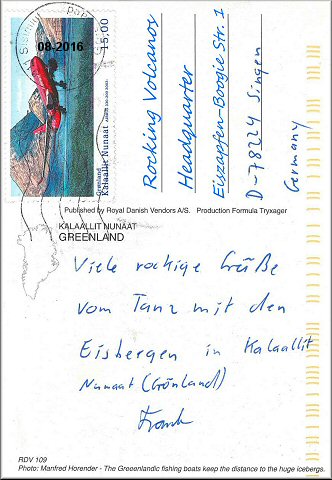 08-2016
15,00
Kalaallit Nunaat
Grønland
Rocking Volcanos
Headquarter
Eiszapfen-Boogie Str. 1
D-78224 Singen
Germany
Published by Royal Danish Vendors A/S. Production Formula Tryxager
KALAALLIT NUNAAT
GREENLAND
Viele rockige Grüße
vom Tanz mit den
Eisbergen in Kalaallit
Nunaat (Grönland)
Frank
RDV 109
Photo: Manfred Horender - The Greenlandic fishing boats keep the distance to the huge icebergs.